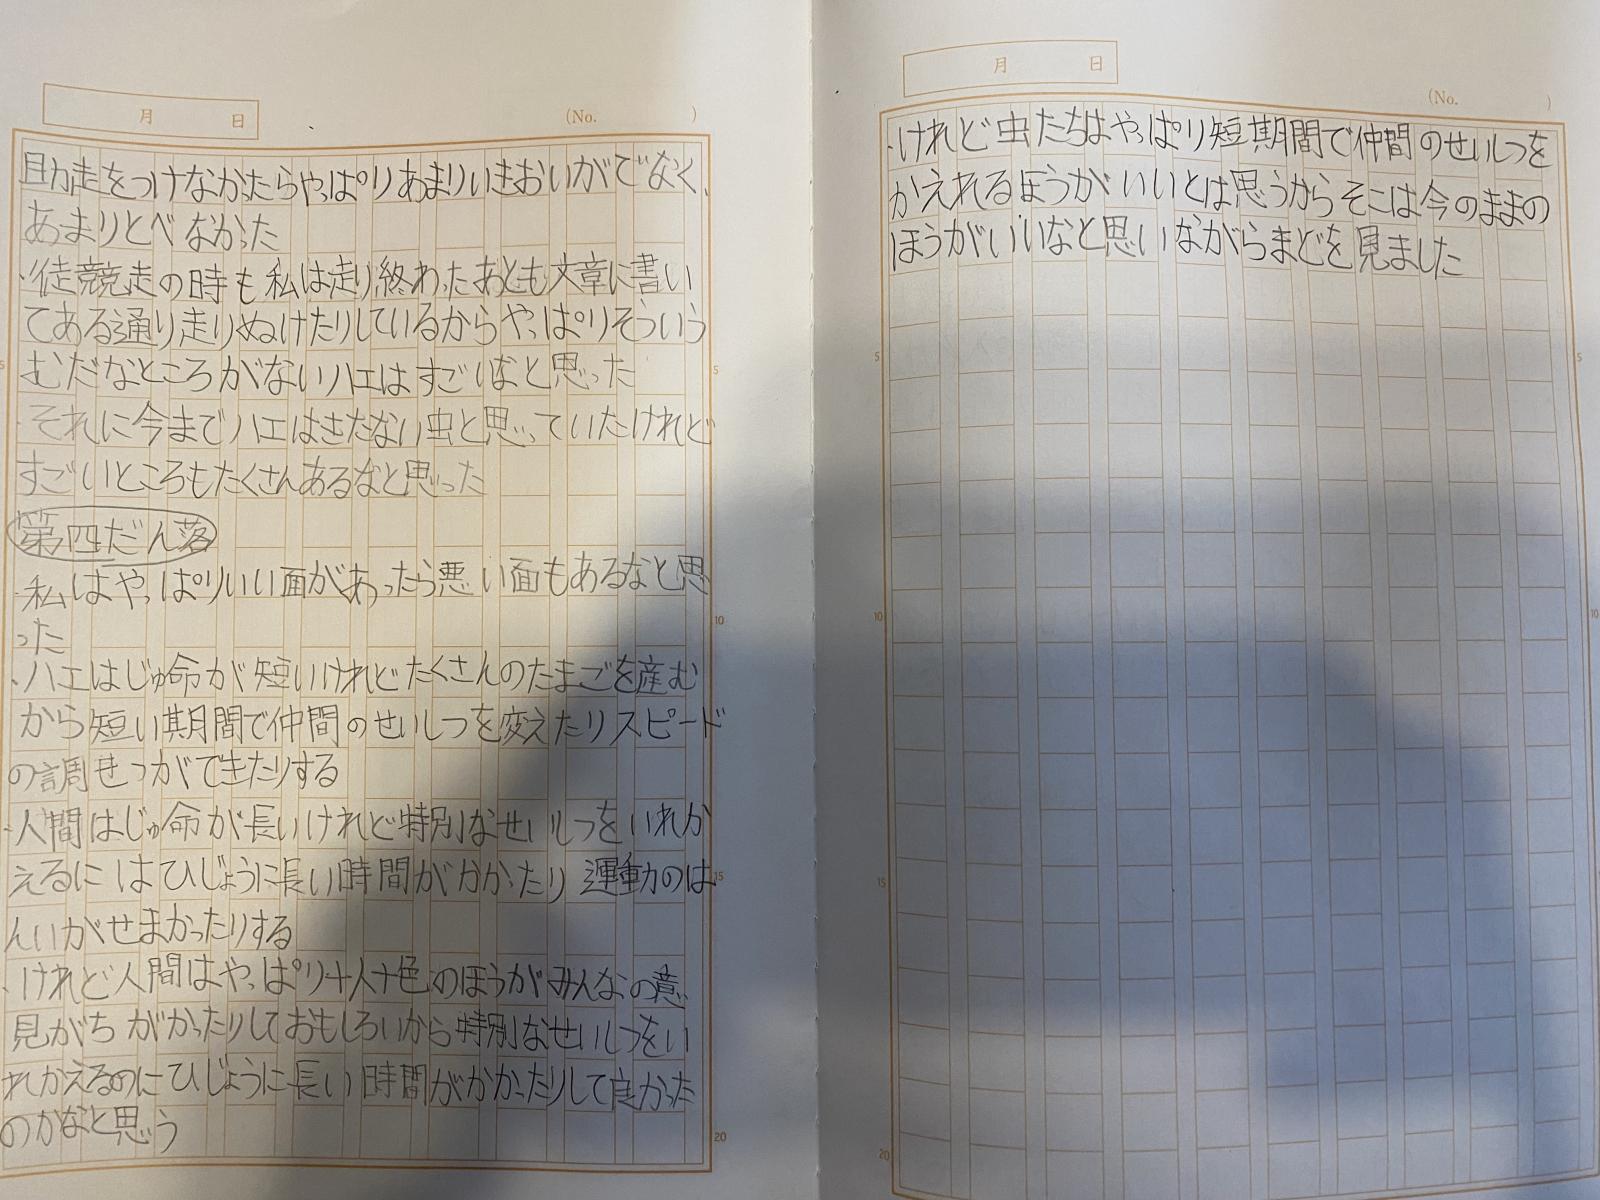 月 日
(No. )
助走をつけなかったらやっぱりあまりいきおいがでなく、
あまりとべなかった
・徒競走の時も私は走り終わったあとも文章に書い
てある通り走りぬけたりしているからやっぱりそういう
むだなところがないハエはすごいなと思った
・それに今までハエはきたない虫と思っていたけれど
すごいところもたくさんあるなと思った
第四だん落
・私はやっぱりいい面があったら悪い面もあるなと思
った
・ハエはじゅ命が短いけれどたくさんのたまごを産む
から短い期間で仲間のせいしつを変えたりスピード
の調せつができたりする
・人間はじゅ命が長いけれど特別なせいしつをいれか
えるにはひじょうに長い時間がかかったり運動のは
んいがせまかったりする
・けれど人間はやっぱり十人十色のほうがみんなの意
見がちがかったりしておもしろいから特別なせいしつをい
れかえるのにひじょうに長い時間がかかったりして良かった
のかなと思う
月 日
(No. )
・けれど虫たちはやっぱり短期間で仲間のせいしつを
かえれるほうがいいとは思うからそこは今のままの
ほうがいいなと思いながらまどを見ました
5
10
15
20
5
10
15
20
5
10